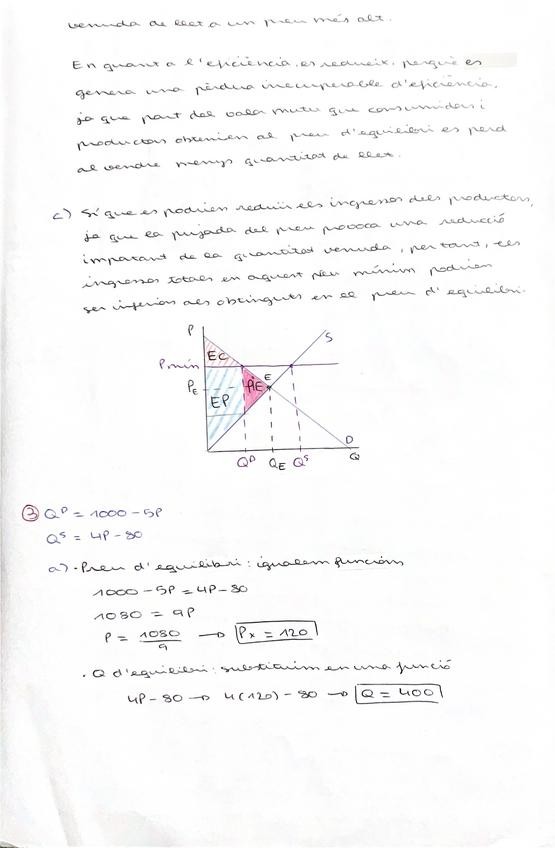 venuda de llet a un preu més alt.
En quant a l'eficiència, es redueix, perquè es
genera una pèrdua irrecuperable d'eficiència,
ja que part del valor mutu que consumidors i
productors obtenien al preu d'equilibri es perd
al vendre menys quantitat de llet.
c) Sí que es podrien reduir els ingressos dels productors,
ja que la pujada del preu provoca una reducció
important de la quantitat venuda, per tant, els
ingressos totals en aquest preu mínim podrien
ser inferiors als obtinguts en el preu d'equilibri.
P
S
EC
Pmín
E
PE
PIE
EP
D
QD QE QS Q
3 QD = 1000 - 5P
QS = 4P - 80
a) · Preu d'equilibri: igualem funcions
1000 - 5P = 4P - 80
1080 = 9P
P = 1080/9 → Px = 120
· Q d'equilibri: substituim en una funció
4P - 80 → 4(120) - 80 → Q = 400